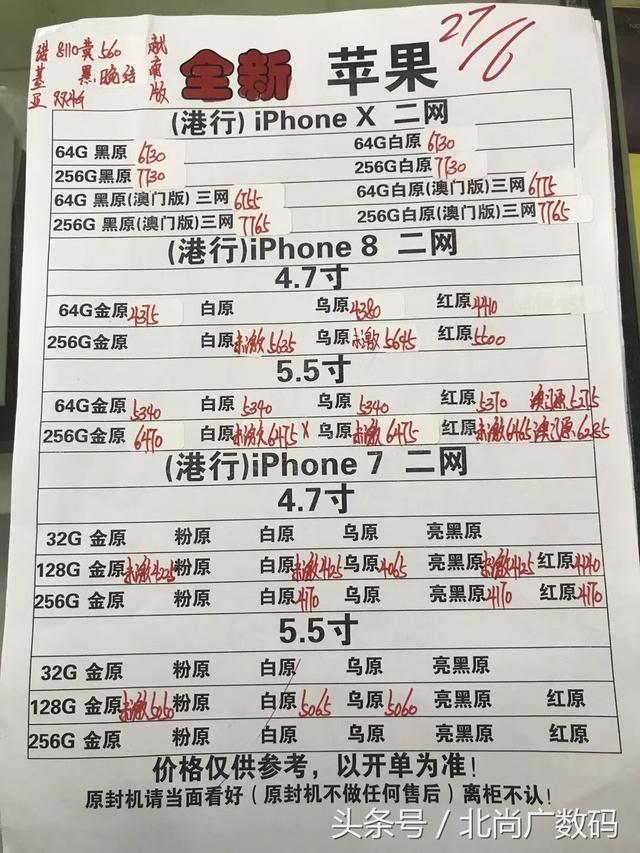 诺基亚 8110黄560 黑 双4G
全新 苹果 27/6
(港行) iPhone X 二网
64G 黑原 6730 64G白原 6730
256G黑原 7730 256G白原 7730
64G 黑原(澳门版) 三网 6755 64G白原(澳门版) 三网 6775
256G 黑原(澳门版) 三网 7765 256G白原(澳门版)三网 7765
(港行)iPhone 8 二网
4.7寸
64G金原 4375 白原 乌原 4380 红原 4410
256G金原 白原 未激 5635 乌原 未激 5645 红原 5500
5.5寸
64G金原 5340 白原 5340 乌原 5340 红原 5370 澳门原 5275
256G金原 6470 白原 未激 6475 X 乌原 未激 6475 红原 未激 6465 澳门原 6285
(港行)iPhone 7 二网
4.7寸
32G 金原 粉原 白原 乌原 亮黑原
128G 金原 未激 4225 粉原 白原 未激 4125 乌原 4065 亮黑原 未激 4125 红原 4440
256G 金原 粉原 白原 4170 乌原 亮黑原 4170 红原 4170
5.5寸
32G 金原 粉原 白原 乌原 亮黑原
128G 金原 未激 5050 粉原 白原 5065 乌原 5060 亮黑原 红原
256G 金原 粉原 白原 乌原 亮黑原 红原
价格仅供参考，以开单为准！
原封机请当面看好（原封机不做任何售后）离柜不认！
头条号 / 北尚广数码